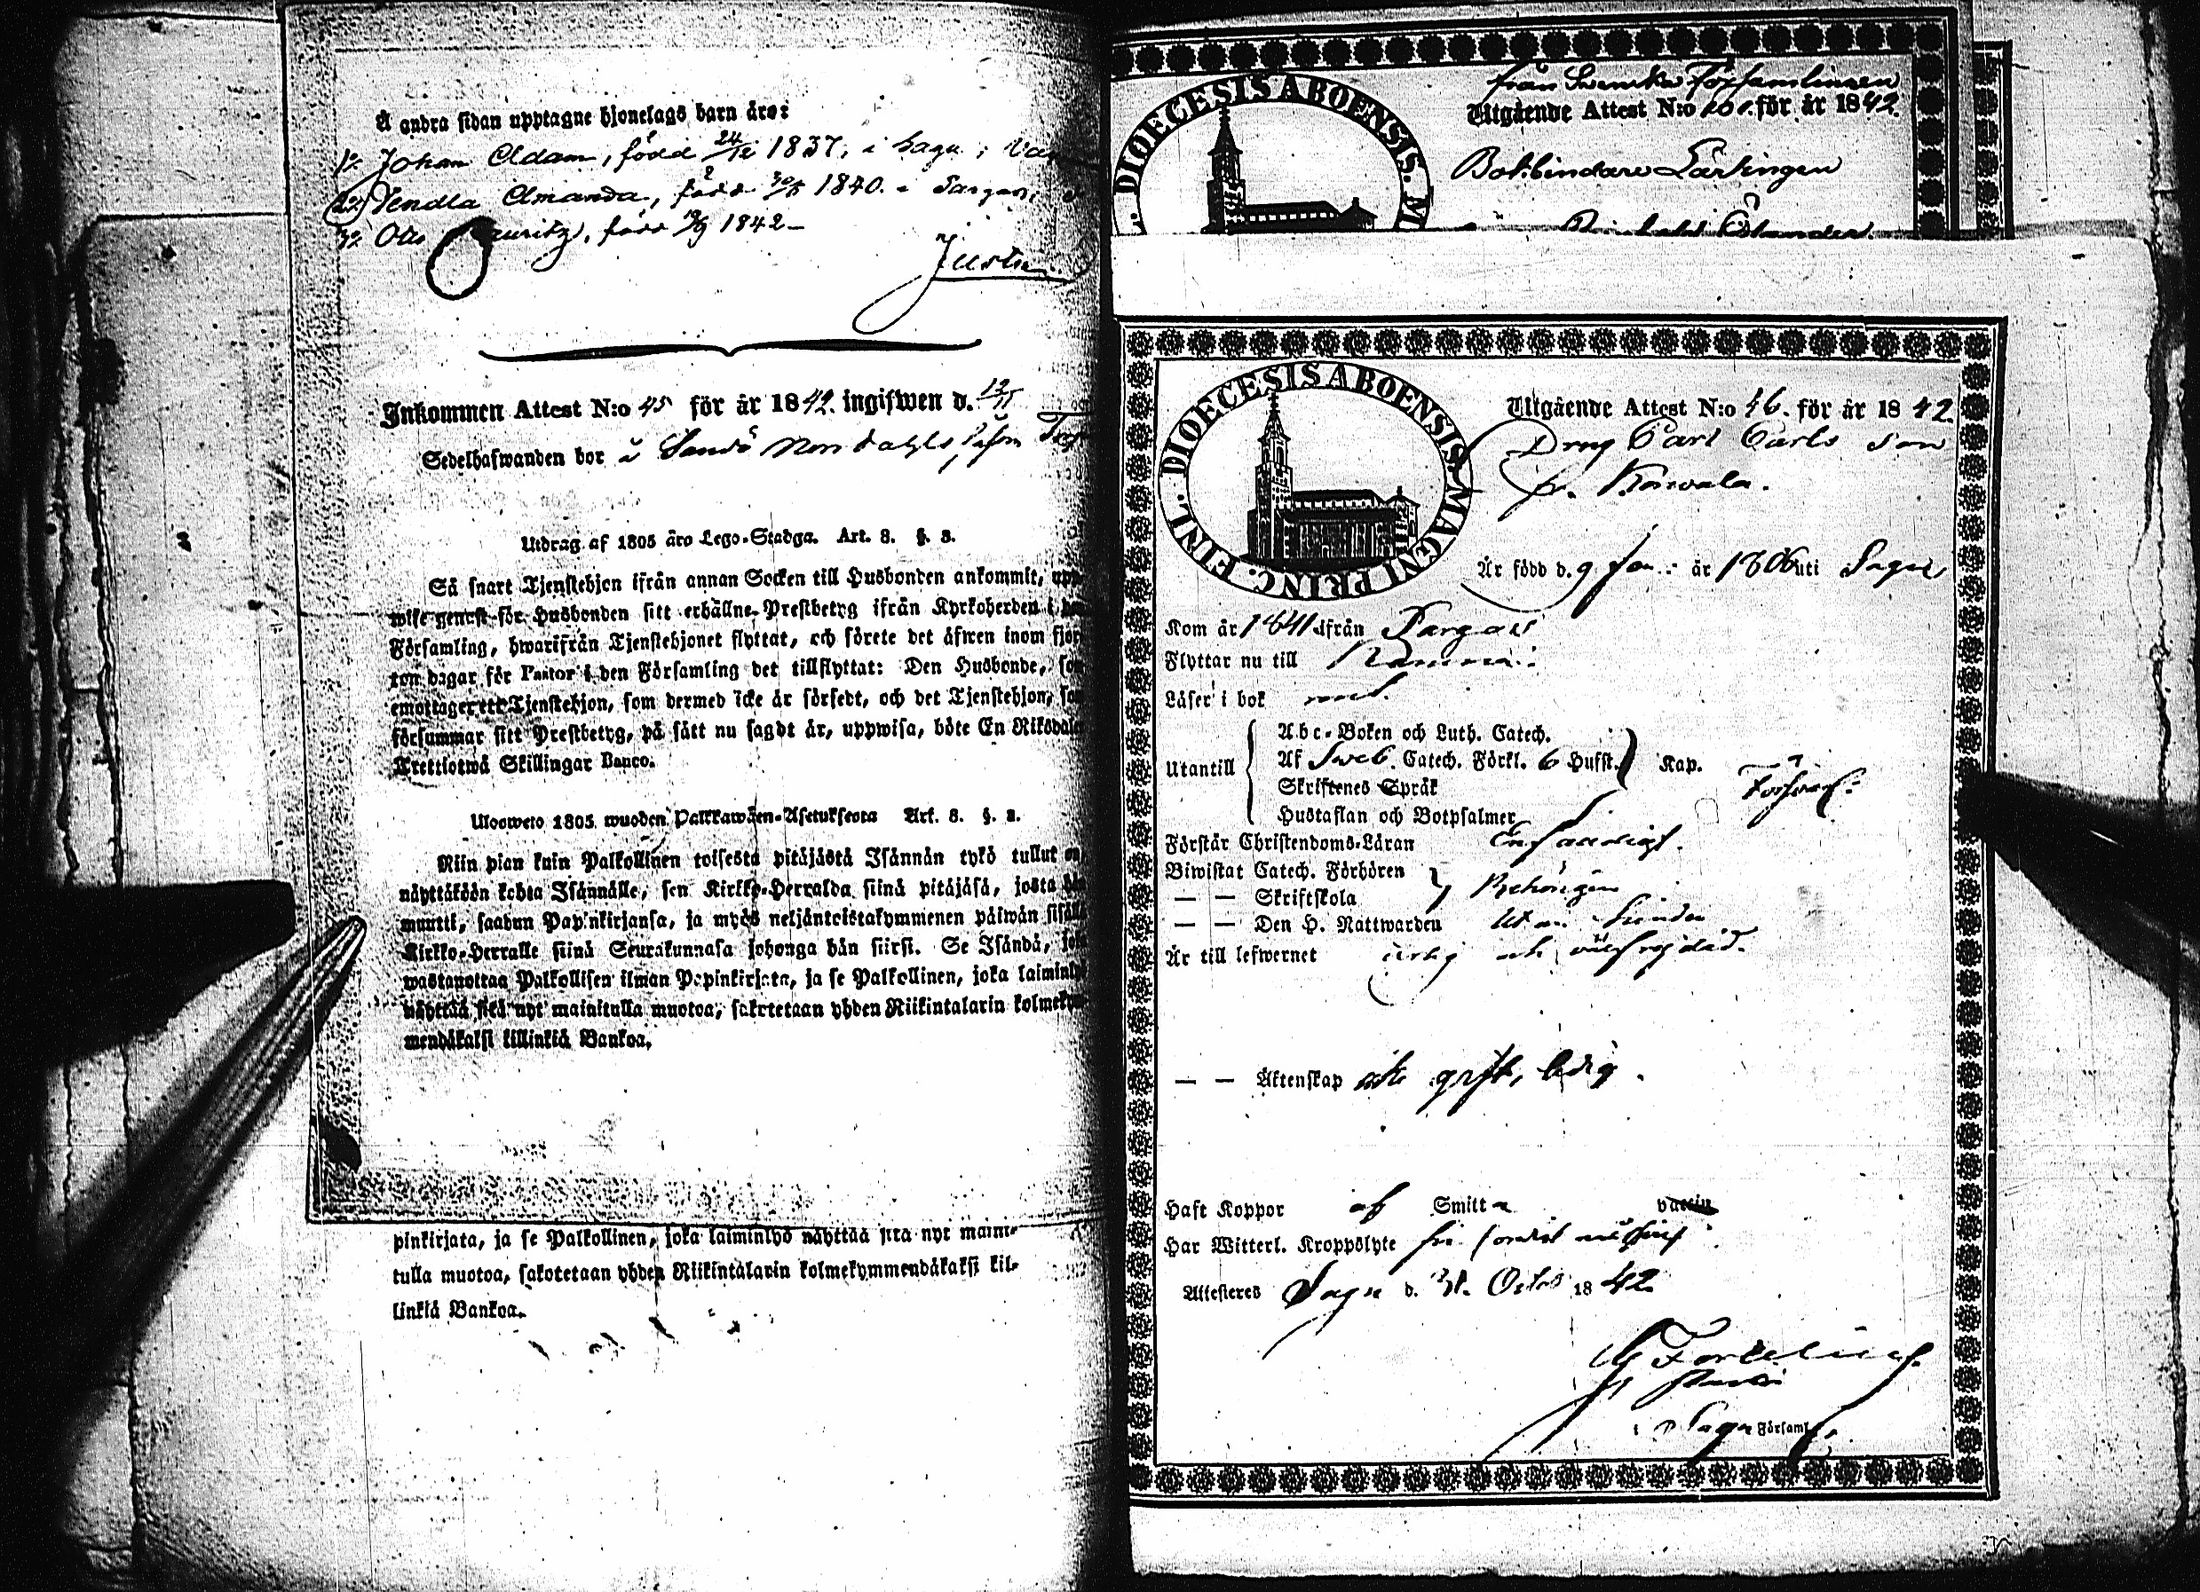 Å andra sidan upptagne hjonelags barn äro:
1:o Johan Adam, född 24/12 1837, i Sagu,
2:o Vendla Amanda, född 1840. i Pargas,
3:o Otto Mauritz, född 1842
Inkommen Attest N:o 45 för år 1842. ingifwen d. 12/11
Sedelhafwanden bor å Sandö
Utdrag af 1805 års Lego-Stadga. Art. 8. §. 3.
Så snart Tjenstehjon ifrån annan Socken till Husbonden ankommit, upp-
wise genast för Husbonden sitt erhållne Prestbetyg ifrån Kyrkoherden i
Församling, hwarifrån Tjenstehjonet flyttat, och förete det äfwen inom fjor-
ton dagar för Pastor i den Församling det tillflyttat: Den Husbonde, som
emottager ett Tjenstehjon, som dermed icke är försedt, och det Tjenstehjon, som
försummar sitt Prestbetyg, på sätt nu sagdt är, uppwisa, böte En Riksdaler
Trettiotwå Skillingar Banco.
Ulosweto 1805 wuoden Palkkawäen-Asetuksesta Art. 8. §. 3.
Niin pian kuin Palkollinen toisesta pitäjästä Isännän tykö tullut on,
näyttäköön kohta Isännälle, sen Kirkko-Herralda siinä pitäjäsä, josta hän
muutti, saadun Papinkirjansa, ja myös neljäntoistakymmenen päiwän sisällä
Kirkko-Herralle siinä Seurakunnasa johonga hän siirsi. Se Isändä, joka
wastaanottaa Palkollisen ilman Papinkirjata, ja se Palkollinen, joka laiminlyö
näyttää sitä nyt mainitulla muotoa, sakotetaan yhden Riikintalarin kolmekym-
mendäkaksi killinkiä Bankoa.
pinkirjata, ja se Palkollinen, joka laiminlyö näyttää sitä nyt maini-
tulla muotoa, sakotetaan yhden Riikintalarin kolmekymmendäkaksi kil-
linkiä Bankoa.
DIOECESIS ABOENSIS. M
från Svenska Församlingen
Utgående Attest N:o för år 1842.
Bokbindare Lärlingen
DIOECESIS ABOENSIS. MAGNI PRINC. FINL.
Utgående Attest N:o 46. för år 1842.
Dreng Carl Carls son
fr. Karvala.
Är född d. 9 Jan. år 1806 uti Sagu
Kom år 1841 ifrån Pargas
Flyttar nu till
Läser i bok
Utantill
Abc-Boken och Luth. Catech.
Af Sweb. Catech. Förkl. 6 Hufst. Kap.
Skriftenes Språk
Hustaflan och Botpsalmer
Förswarl:
Förstår Christendoms-Läran Enfaldigt.
Biwistat Catech. Förhören
— — Skriftskola
Behörigen
— — Den H. Nattwarden utan hinder
Är till lefwernet ärlig och wälfrejdad.
— — Äktenskap icke gift, ledig.
Haft Koppor af Smitta vaccin
Har Witterl. Kroppslyte
Attesteres Sagu d. 31. Octob 1842.
Sagu Församl.